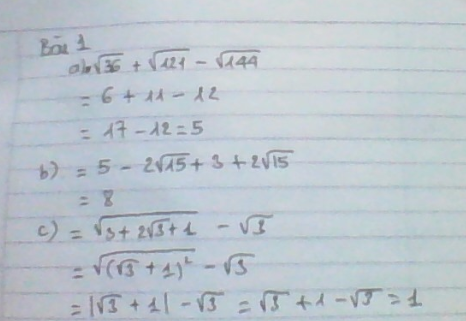 Bài 1
a) √36 + √121 - √144
= 6 + 11 - 12
= 17 - 12 = 5
b) = 5 - 2√15 + 3 + 2√15
= 8
c) = √(3 + 2√3 + 1) - √3
= √((√3 + 1)²) - √3
= |√3 + 1| - √3 = √3 + 1 - √3 = 1